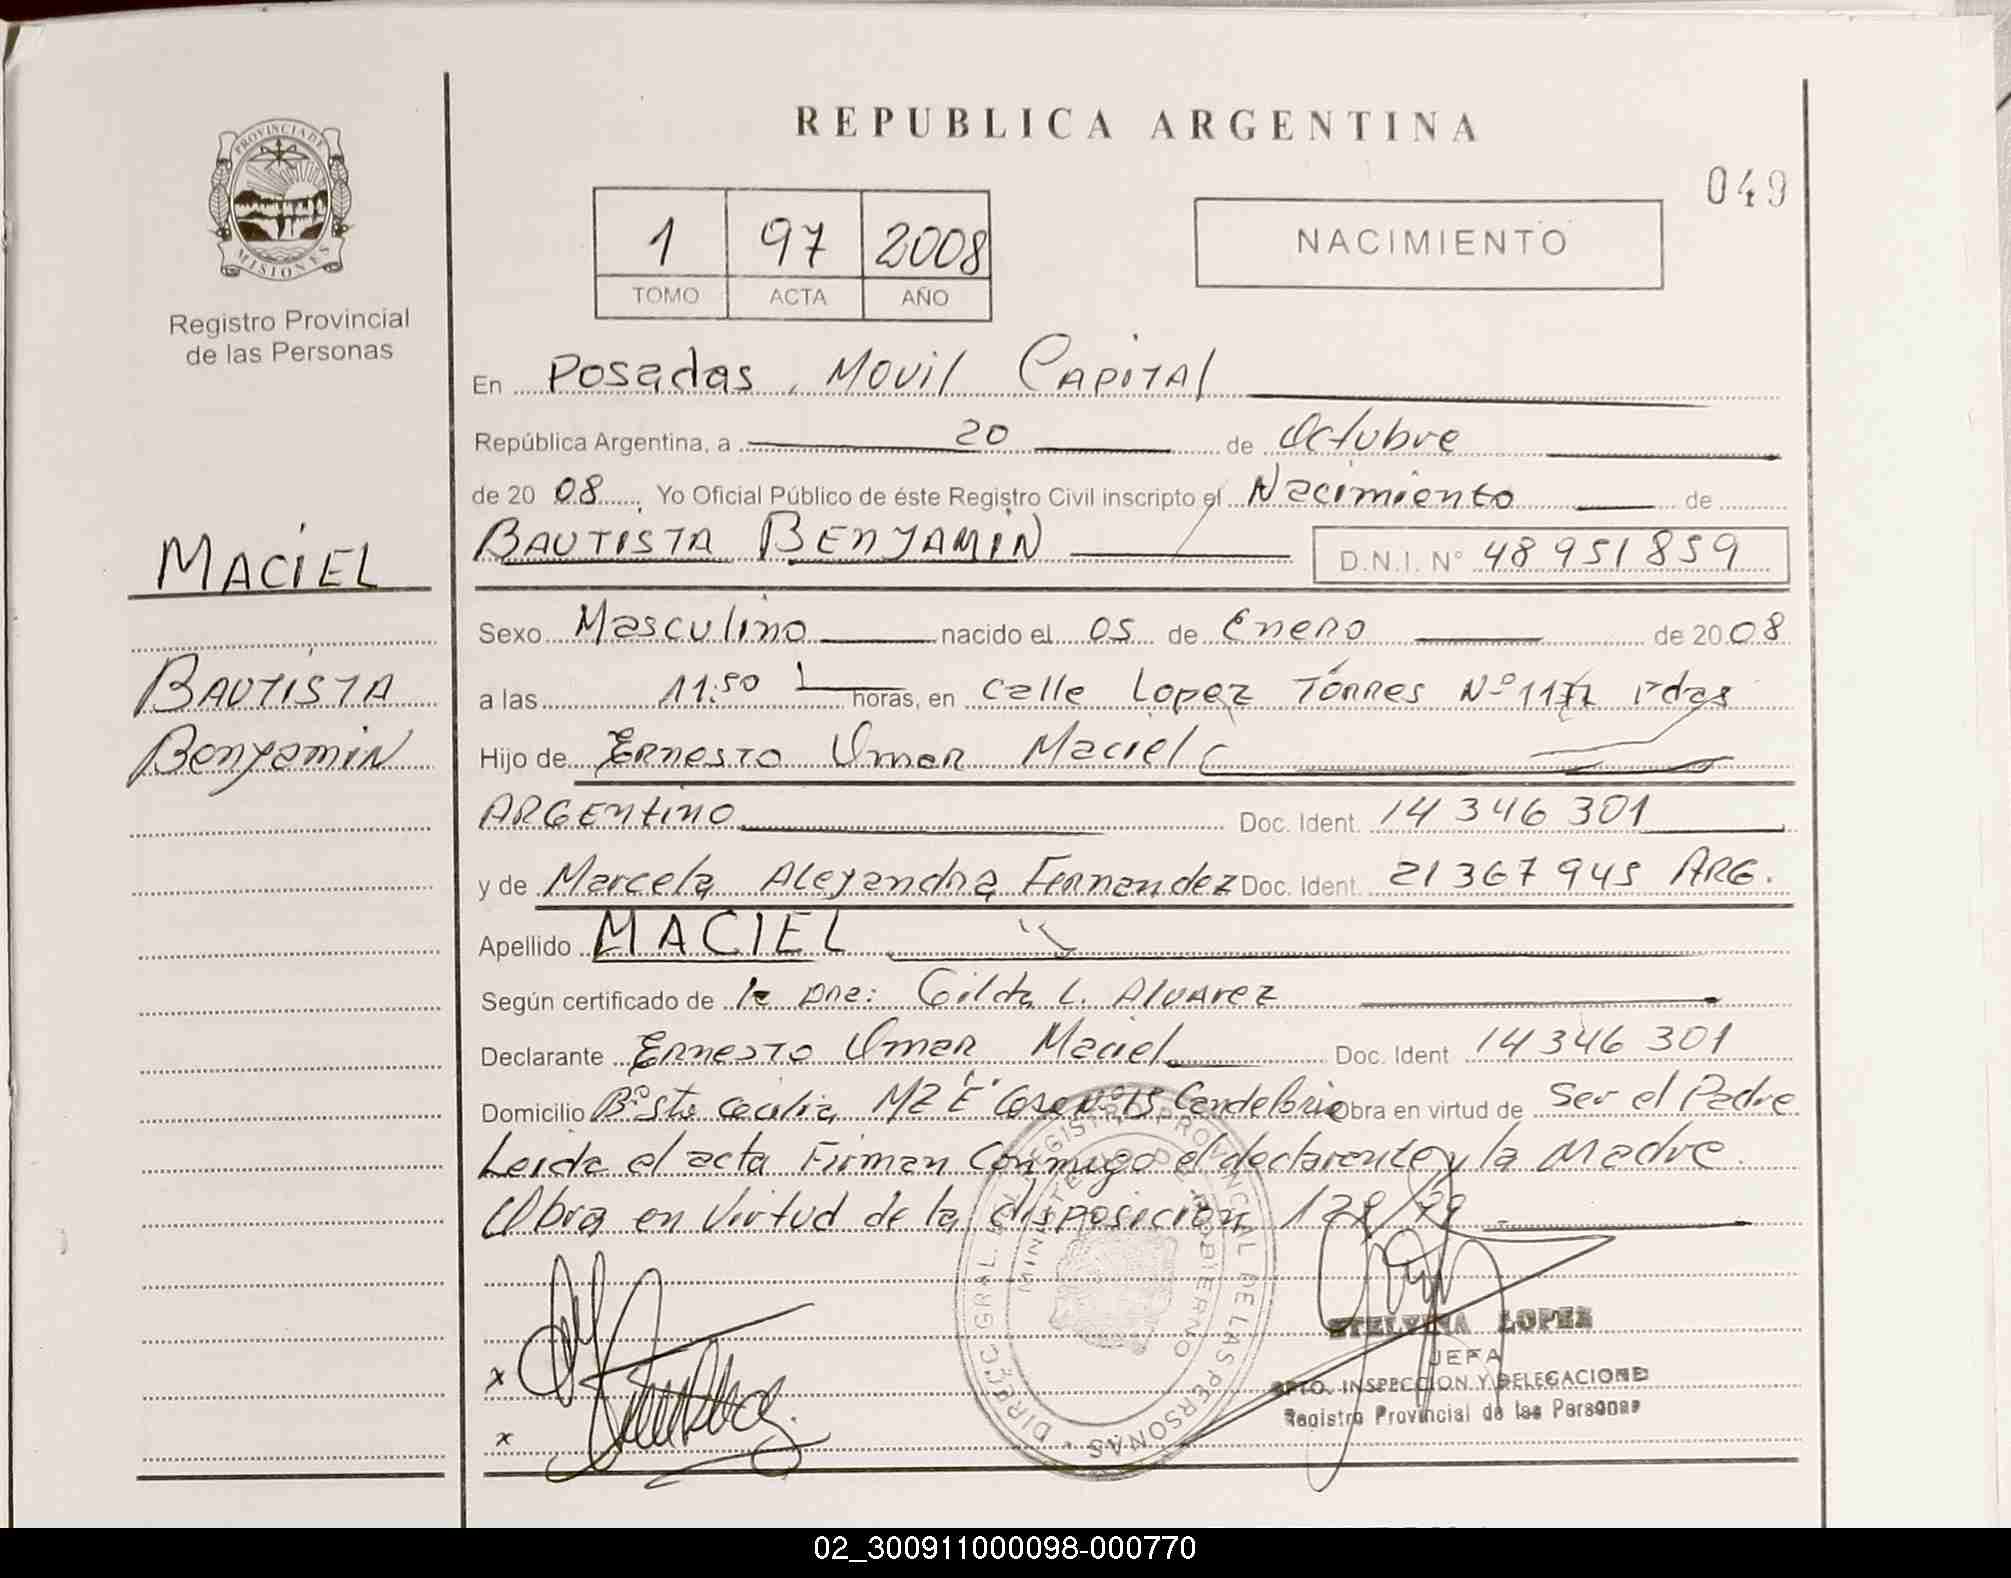 REPUBLICA ARGENTINA
049
PROVINCIA DE
MISIONES
Registro Provincial
de las Personas
1 97 2008
TOMO ACTA AÑO
NACIMIENTO
En Posadas, Movil Capital
República Argentina, a 20 de Octubre
de 20 08, Yo Oficial Público de éste Registro Civil inscripto el Nacimiento de
BAUTISTA BENJAMIN D.N.I. Nº 48 951 859
MACIEL
Bautista
Benjamin
Sexo Masculino nacido el 05 de Enero de 20 08
a las 11:50 horas, en Calle Lopez Torres Nº
Hijo de Ernesto Omar Maciel
ARGENTINO Doc. Ident. 14 346 301
y de Marcela Alejandra Fernandez Doc. Ident. 21 367 945 ARG.
Apellido MACIEL
Según certificado de la Dra: Gilda L. Alvarez
Declarante Ernesto Omar Maciel Doc. Ident 14 346 301
Domicilio Bº Sta Cecilia MZ "E" Casa Nº 15 Candelaria Obra en virtud de Ser el Padre
Leida el acta Firman Conmigo el declarante y la Madre
Obra en Virtud de la disposición
DIRECC. GRAL. DEL REGISTRO PROVINCIAL DE LAS PERSONAS
MINISTERIO DE GOBIERNO
x
x
STELVINA LOPEZ
JEFA
DPTO. INSPECCION Y DELEGACIONES
Registro Provincial de las Personas
02_300911000098-000770